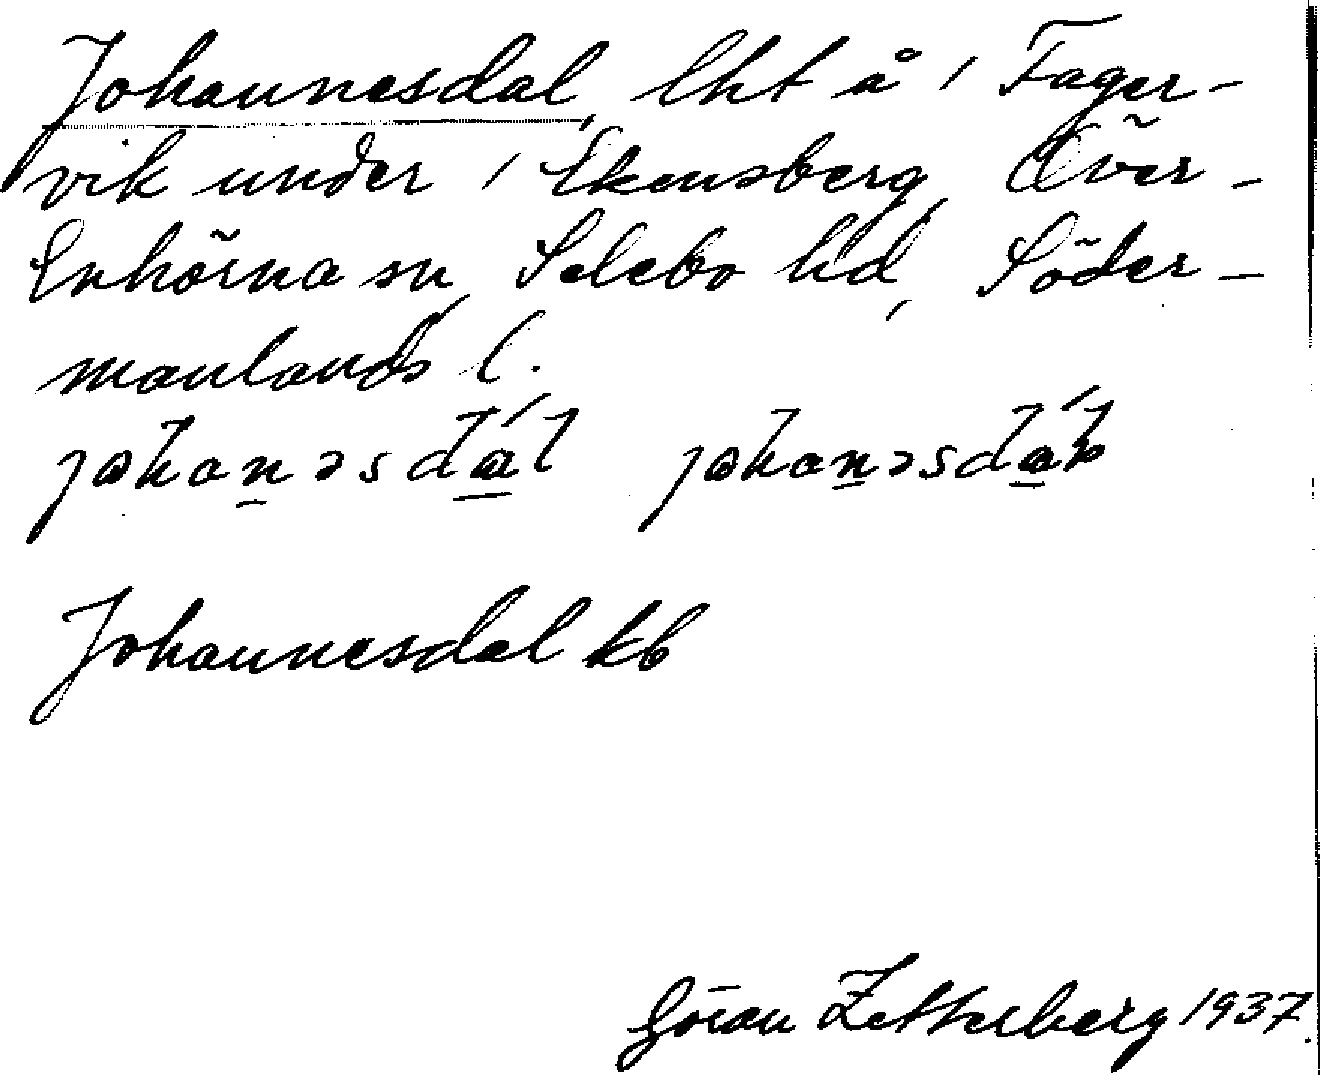 Johannesdal, lht å 1 Fager-
vik under 1 Ekensberg, Över-
Enhörna sn, Selebo hd, Söder-
manlands l.
johanəsdál johanəsdáɫ
Johannesdal kb
Göran Zetterberg 1937.